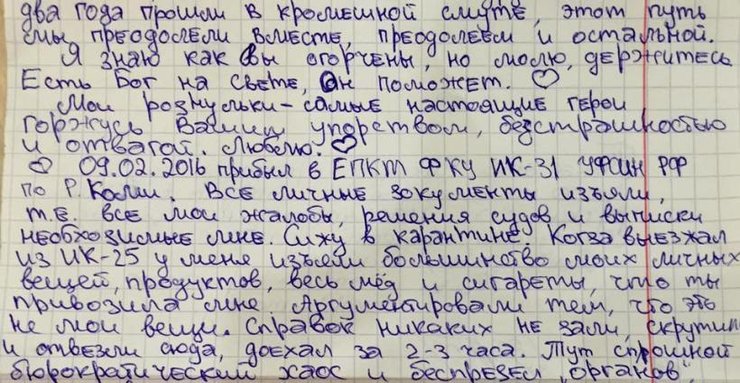 два года прошли в кромешной смуте, этот путь
мы преодолели вместе, преодолеем и остальной.
Я знаю как Вы огорчены, но молю, держитесь
Есть Бог на свете, Он поможет. ♡
Мои рознульки – самые настоящие герои
Горжусь Вашим упорством, безстрашностью
и отвагой. Люблю. ♡
09.02.2016 прибыл в ЕПКТ ФКУ ИК-31 УФСИН РФ
по Р. Коми. Все личные документы изъяли,
т.е. все мои жалобы, решения судов и выписки
необходимые мне. Сижу в карантине. Когда выезжал
из ИК-25 у меня изъяли большинство моих личных
вещей, продуктов, весь мёд и сигареты, что ты
привозила мне. Аргументировали тем, что это
не мои вещи. Справок никаких не дали, скрутили
и отвезли сюда, доехал за 2-3 часа. Тут сплошной
бюрократический хаос и беспредел „органов"